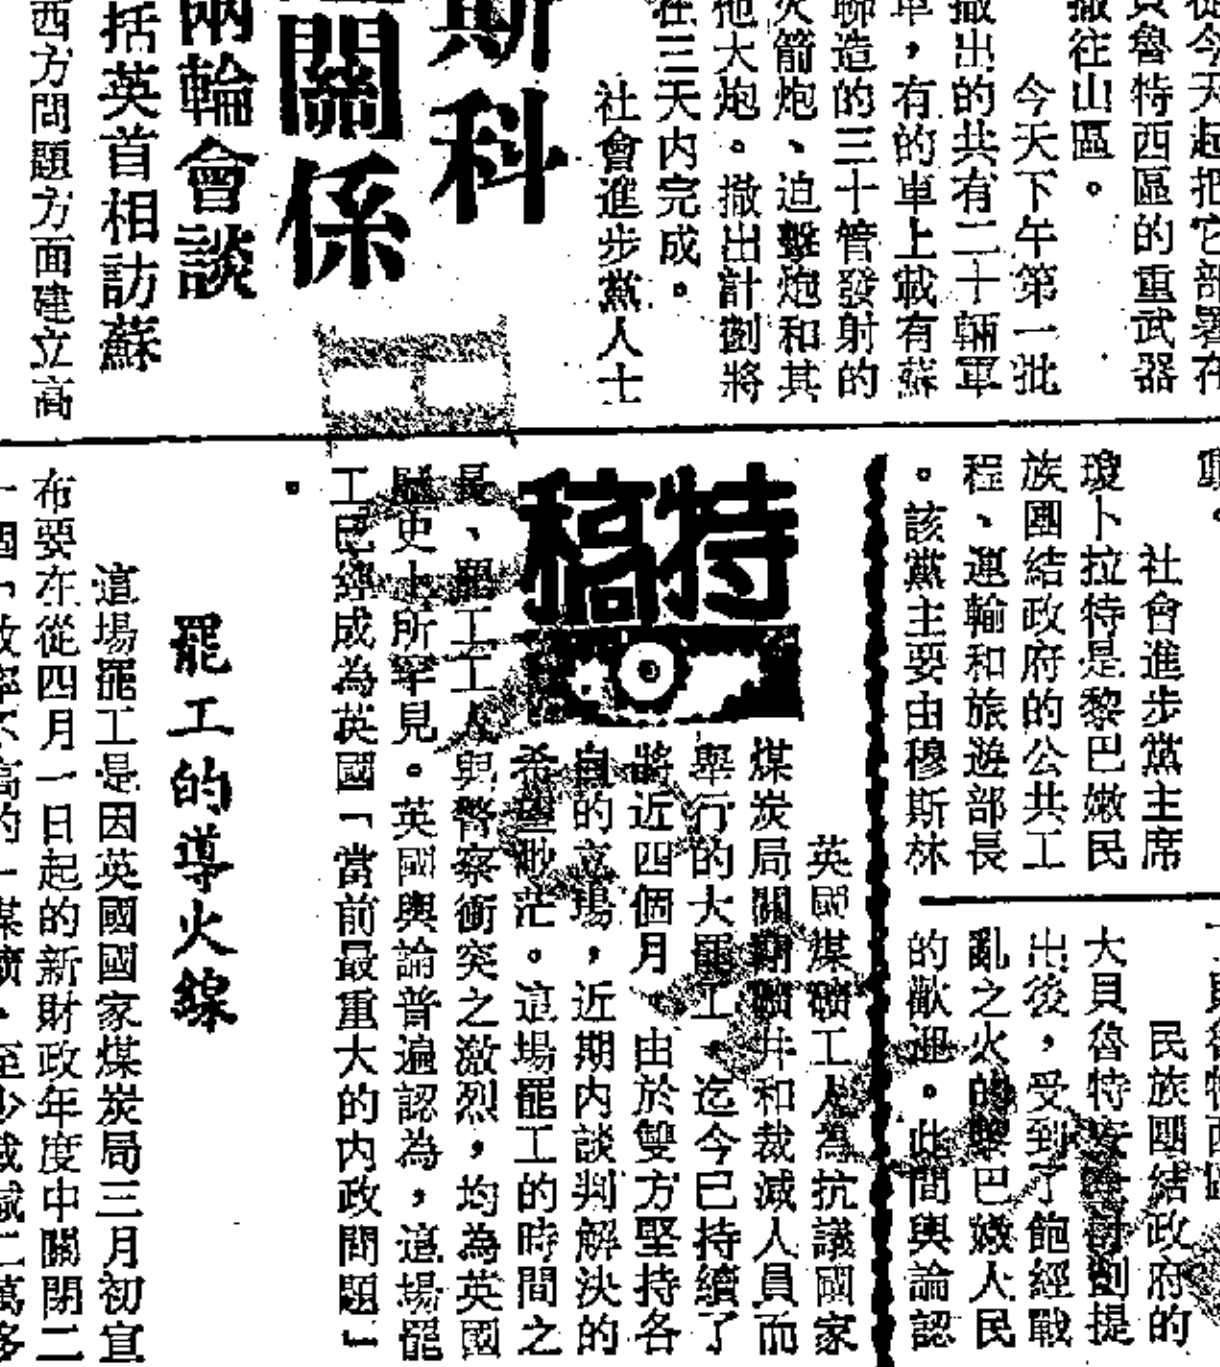 從今天起把它部署在
貝魯特西區的重武器
撤往山區。
今天下午第一批
撤出的共有二十輛軍
車，有的車上載有蘇
聯造的三十管發射的
火箭炮、迫擊炮和其
他大炮。撤出計劃將
在三天内完成。
社會進步黨人士
斯科
關係
兩輪會談
括英首相訪蘇
西方問題方面建立高
社會進步黨主席
瓊卜拉特是黎巴嫩民
族團結政府的公共工
程、運輸和旅遊部長
。該黨主要由穆斯林
民族團結政府的
大貝魯特安全計劃提
出後，受到了飽經戰
亂之火的黎巴嫩人民
的歡迎。此間輿論認
特稿
英國煤礦工人為抗議國家
煤炭局關閉礦井和裁減人員而
舉行的大罷工，迄今已持續了
將近四個月。由於雙方堅持各
自的立場，近期内談判解決的
希望渺茫。這場罷工的時間之
長、罷工工人與警察衝突之激烈，均為英國
歷史上所罕見。英國輿論普遍認為，這場罷
工已經成為英國「當前最重大的内政問題」
。
罷工的導火線
這場罷工是因英國國家煤炭局三月初宣
布要在從四月一日起的新財政年度中關閉二